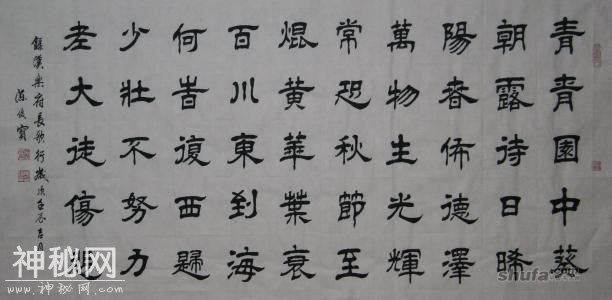 青青園中葵
朝露待日晞
陽春佈德澤
萬物生光輝
常恐秋節至
焜黃華葉衰
百川東到海
何旹復西歸
少壯不努力
老大徒傷悲
錄漢樂府長歌行歲次
神秘网
www.神秘网.com